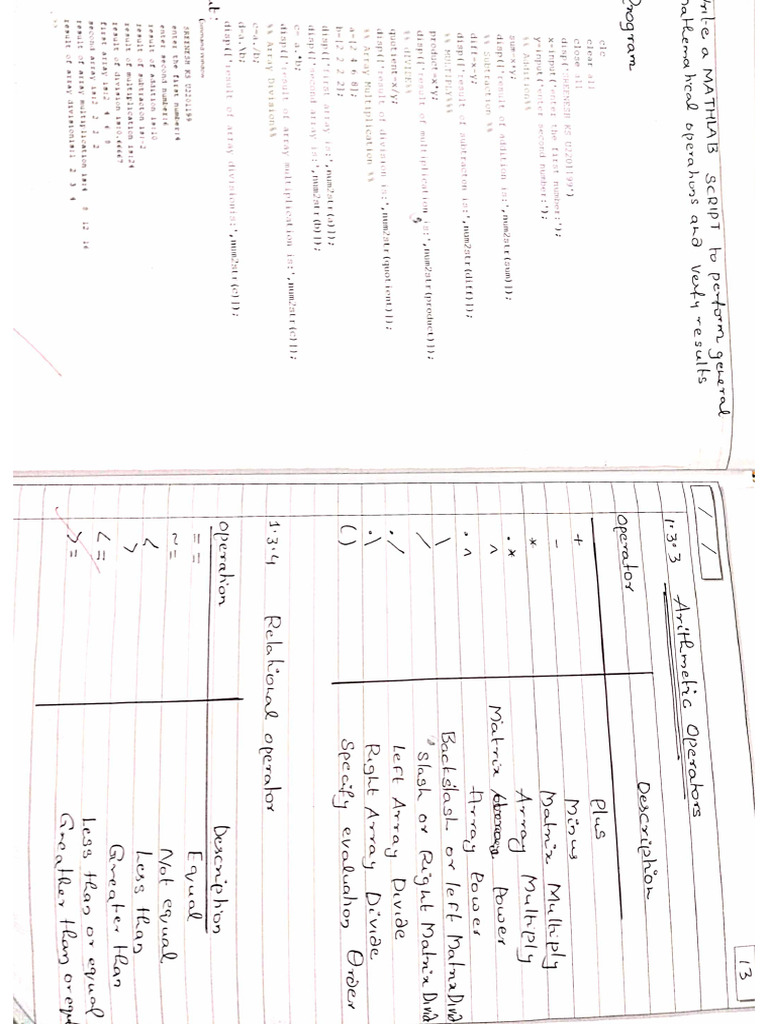 write a MATHLAB SCRIPT to perform general
mathematical operations and verify results
Program
clc
clear all
close all
disp('SREENESH KS U2201199')
x=input('enter the first number:');
y=input('enter second number:');
%% Addition%%
sum=x+y;
disp(['result of addition is:',num2str(sum)]);
%% Subtraction %%
diff=x-y;
disp(['result of subtracton is:',num2str(diff)]);
%% MULTIPLY%%
product=x*y;
disp(['result of multiplication is:',num2str(product)]);
%% dIVIDE%%
quotient=x/y;
disp(['result of division is:',num2str(quotient)]);
%% Array Multiplication %%
a=[2 4 6 8];
b=[2 2 2 2];
disp(['first array is:',num2str(a)]);
disp(['second array is:',num2str(b)]);
c= a.*b;
disp(['result of array multiplication is:',num2str(c)]);
%% Array Division%%
c=a./b;
d=a.\b;
disp(['result of array divisionis:',num2str(c)]);
SREENESH KS U2201199
enter the first number:4
enter second number:6
result of addition is:10
result of subtracton is:-2
result of multiplication is:24
result of division is:0.66667
first array is:2 4 6 8
second array is:2 2 2 2
result of array multiplication is:4 8 12 16
result of array divisionis:1 2 3 4
>>
/ /
13
1.3.3 Arithmetic Operators
Operator Description
+ Plus
- Minus
* Matrix Multiply
.* Array Multiply
^ Matrix Power
.^ Array Power
\ Backslash or left Matrix Divid
/ slash or Right Matrix Divid
./ Left Array Divide
.\ Right Array Divide
() Specify evaluation Order
1.3.4 Relational operator
operation Description
== Equal
~= Not equal
< Less than
> Greater than
<= Less than or equal
>= Greather than or equ